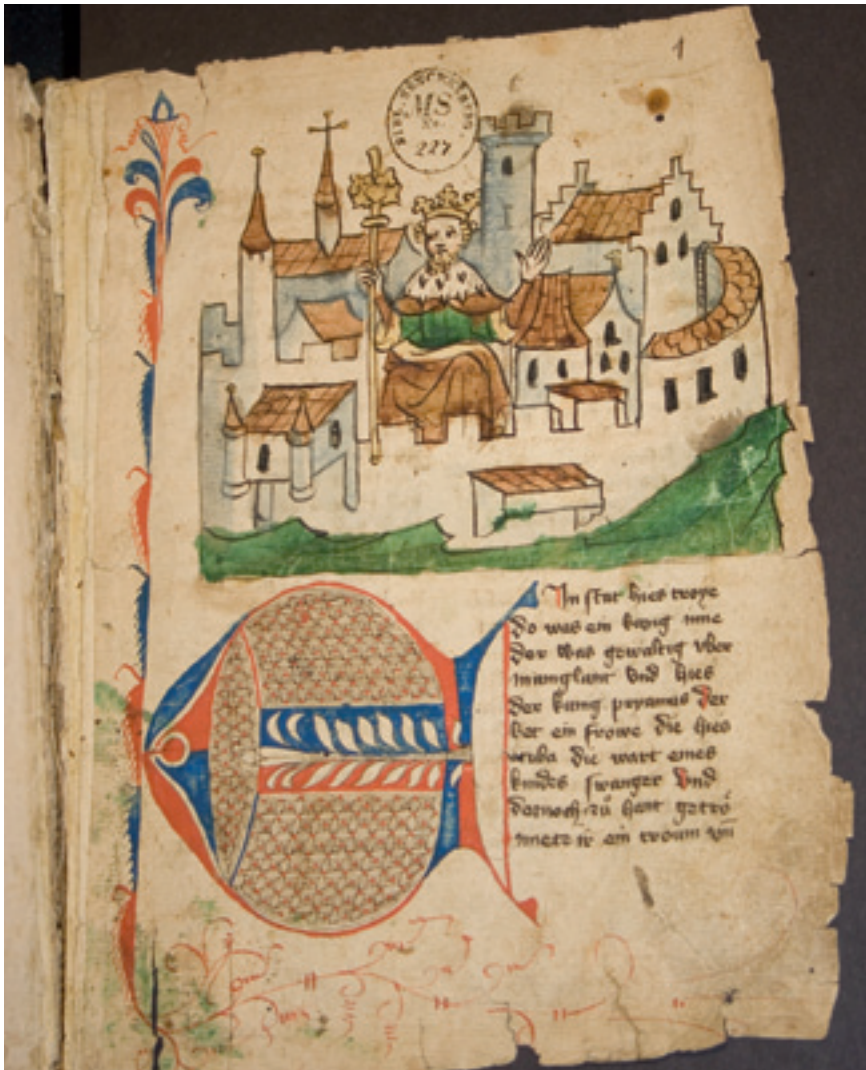 1
MS
227
E In stat hies troye
do was ein kunig inne
der was gewaltig vber
manglant vnd hies
der kunig pryamus Der
het ein frowe die hies
die wart eines
kindes swanger Vnd
dornoch zů hant getrö
mete ir ein troum